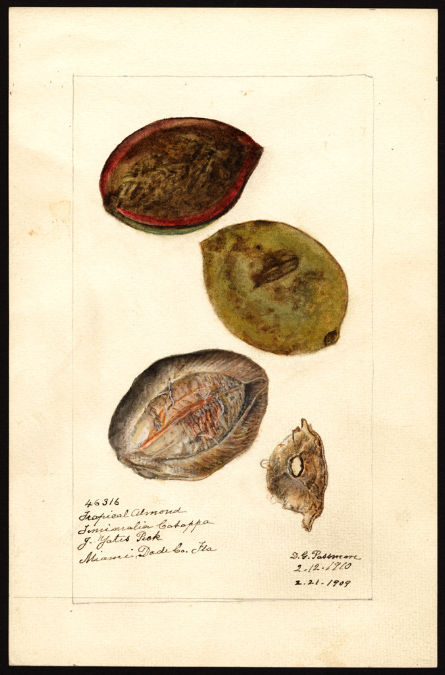 46316
Tropical Almond
Catappa
J. Yates Peek
Miami, Dade Co. Fla
D. G. Passmore
2-12-1910
2-21-1909